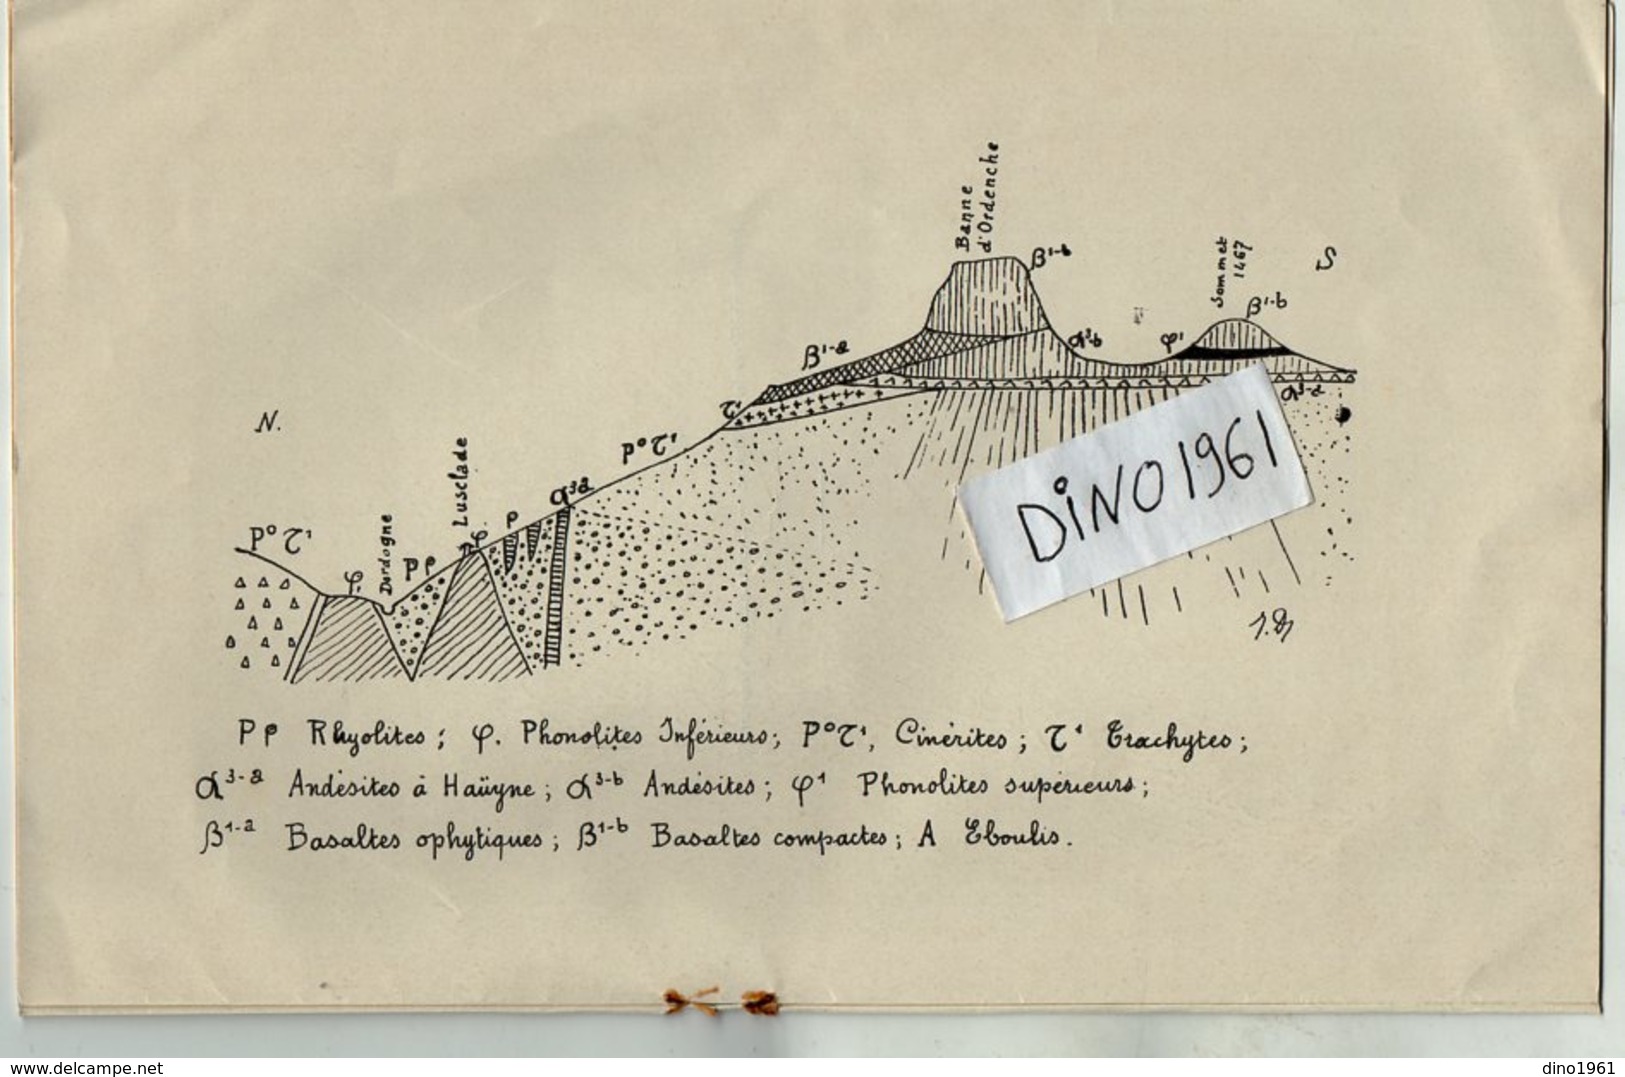 Banne
d'Ordenche
β¹⁻ᵇ
Sommet
1467
S
β¹⁻ᵇ
α³⁻ᵇ
φ¹
β¹⁻ᵃ
α³⁻ᵃ
τ¹
N.
P°τ¹
Lusclade
α³ᵃ
DiNO1961
P°τ¹
Dordogne
φ.
ρ
Pρ
φ.
Pρ Rhyolites ; φ. Phonolites Inférieurs; P°τ¹, Cinérites ; τ¹ Trachytes ;
α³⁻ᵃ Andésites à Haüyne ; α³⁻ᵇ Andésites ; φ¹ Phonolites supérieurs ;
β¹⁻ᵃ Basaltes ophytiques ; β¹⁻ᵇ Basaltes compactes ; A Eboulis.
www.delcampe.net
dino1961